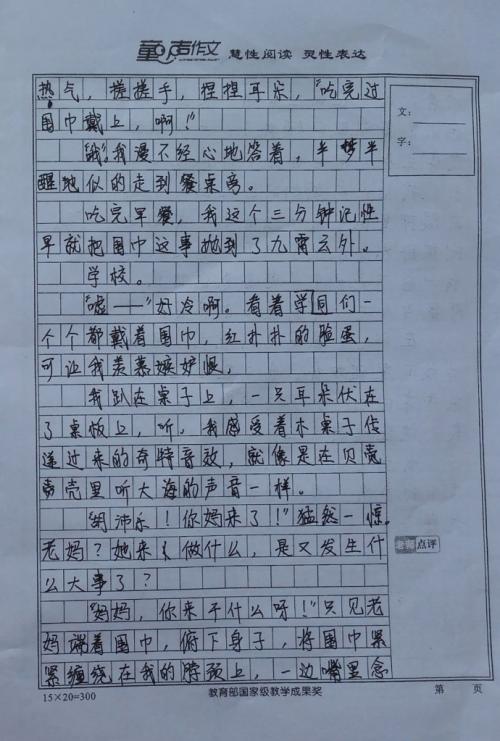 童声作文 慧性阅读 灵性表达
热气，搓搓手，捏捏耳朵，“吃完过
围巾戴上，啊！”
“哦。”我漫不经心地答着，半梦半
醒地似的走到餐桌旁。
吃完早餐，我这个三分钟记性
早就把围巾这事抛到了九霄云外。
学校。
“嘘——”好冷啊。看着学同们一
个个都戴着围巾，红扑扑的脸蛋，
可让我羡慕嫉妒恨，
我趴在桌子上，一只耳朵伏在
了桌板上，听，我感受着木桌子传
递过来的奇特音效，就像是在贝壳
壳里听大海的声音一样。
沛乐！你妈来了！”猛然一惊。
老妈？她来干做什么，是又发生什
么大事了？
“妈妈，你来干什么呀！”只见老
妈端着围巾，俯下身子，将围巾紧
紧缠绕在我的脖颈上，一边嘴里念
文：
字：
老师点评
15×20=300
教育部国家级教学成果奖
第 页